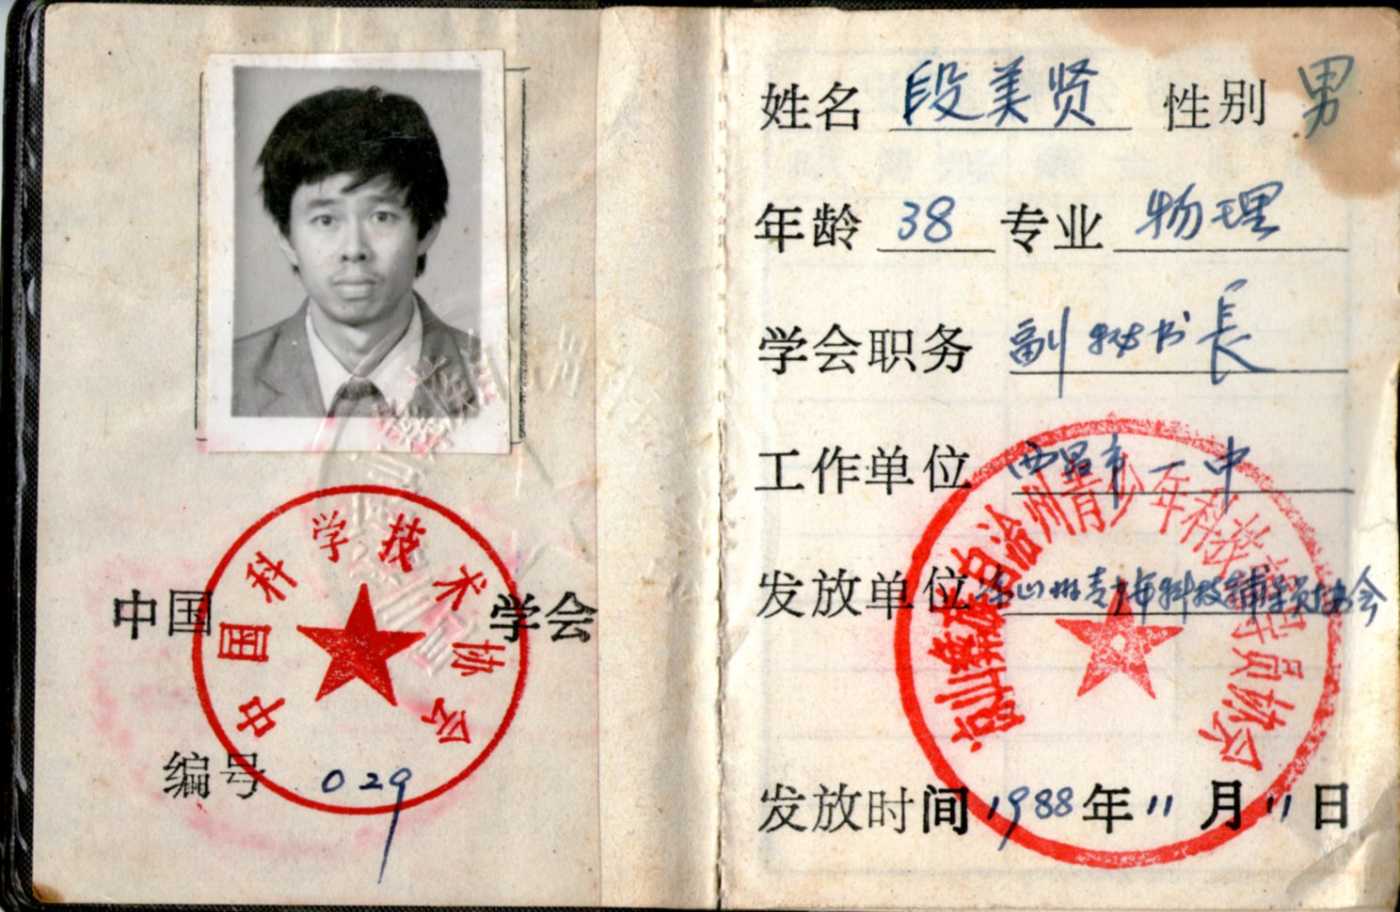 中国科学技术协会
中国 学会
编号 029
姓名 段美贤 性别 男
年龄 38 专业 物理
学会职务 副秘书長
工作单位 西昌市一中
发放单位 凉山州青少年科技辅导员协会
凉山彝族自治州青少年科技辅导员协会
发放时间 1988年11月11日